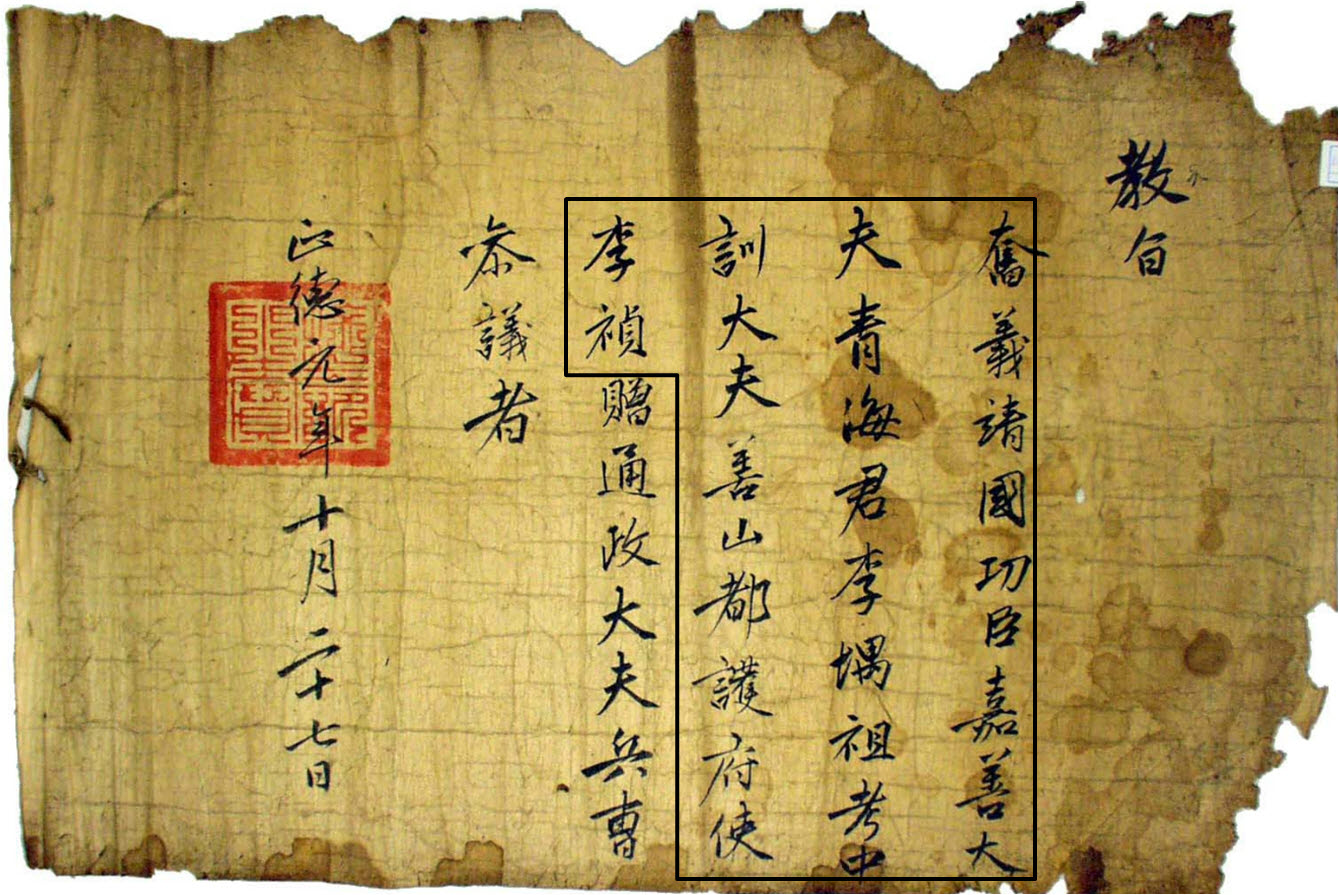 教旨
奮義靖國功臣嘉善大
夫青海君李堣祖考中
訓大夫善山都護府使
李禎贈通政大夫兵曹
叅議者
正德元年十月二十七日